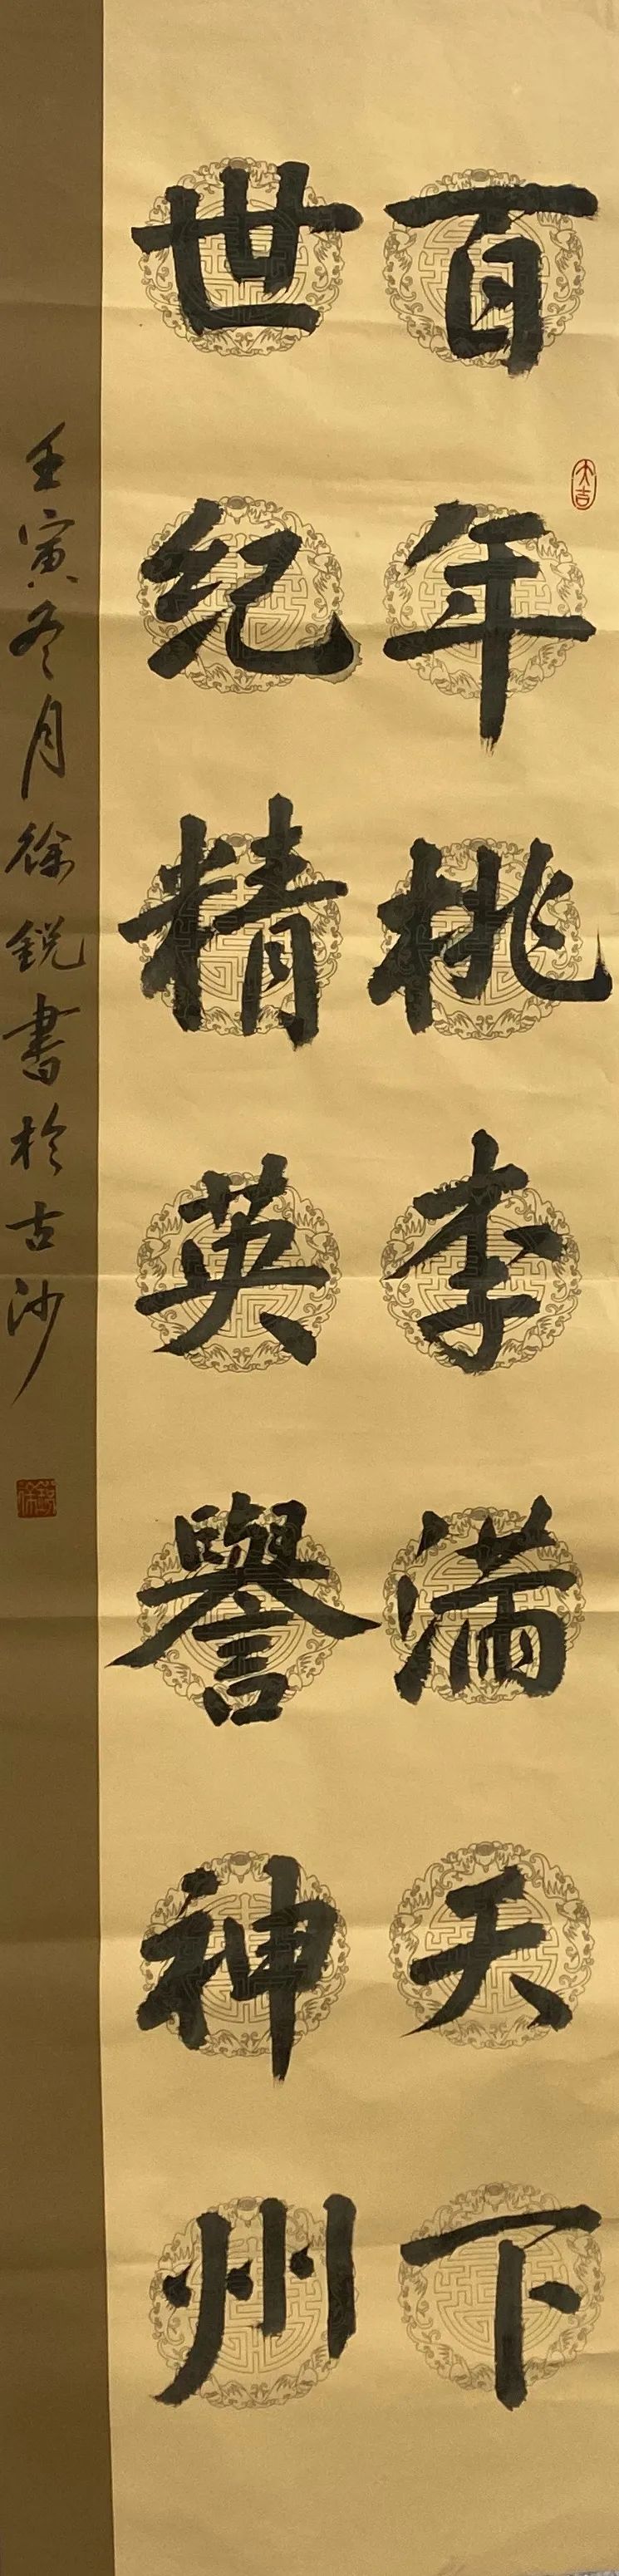 百年桃李满天下
世纪精英譽神州
壬寅冬月徐锐書於古沙
大吉
徐锐